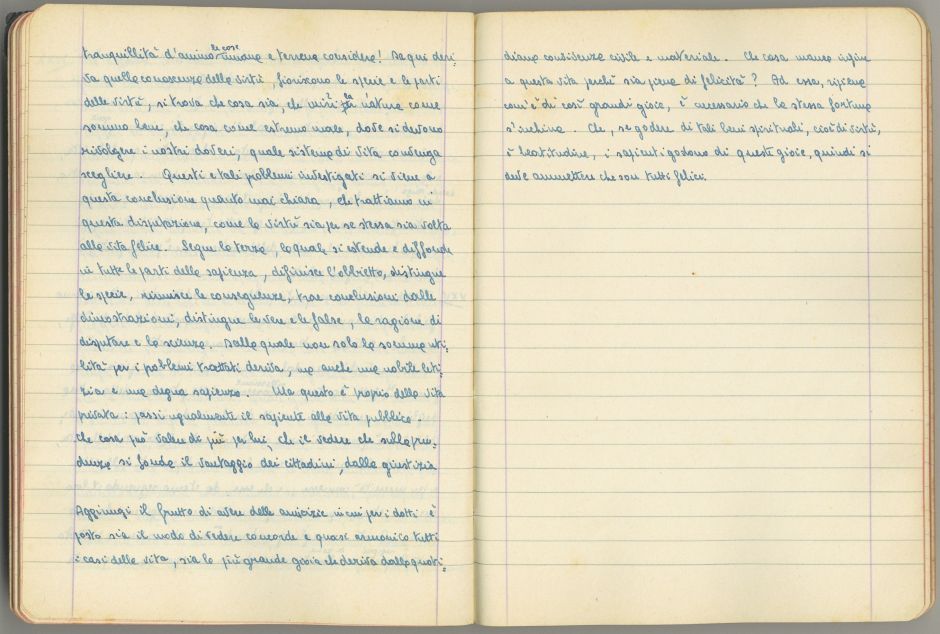 le cose
tranquillità d'animo umane e terrene considera! Da qui deri-
va quella conoscenza della virtù, fioriscono le specie e le parti
delle virtù, si trova che cosa sia, che miri la natura come
sommo bene, che cosa come estremo male, dove si devono
rivolgere i nostri doveri, quale sistema di vita convenga
scegliere. Questi e tali problemi investigati si viene a
questa conclusione quanto mai chiara, che trattiamo in
questa disputazione, come la virtù sia per se stessa sia volta
alla vita felice. Segue la terza, la quale si estende e diffonde
in tutte le parti della sapienza, definisce l'obbietto, distingue
le specie, riunisce le conseguenze, trae conclusioni dalle
dimostrazioni, distingue le vere e le false, la ragione di
disputare e la scienza. Dalla quale non solo la somma uti-
lità per i problemi trattati deriva, ma anche una nobile leti-
zia e una degna sapienza. Ma questo è proprio della vita
privata: passi ugualmente il sapiente alla vita pubblica.
Che cosa può valere di più per lui, che il vedere che sulla pru-
denza si fonda il vantaggio dei cittadini, dalla giustizia
Aggiungi il frutto di avere delle amicizie in cui per i dotti è
posto sia il modo di vedere concorde e quasi armonico tutti
i casi della vita, sia la più grande gioia che deriva dalla quoti-
diana consistenza civile e materiale. Che cosa manca infine
a questa vita perché sia piena di felicità? Ad essa, ripiena
com'è di così grandi gioie, è necessario che la stessa fortuna
s'inchina. Che, se godere di tali beni spirituali, cioè di virtù,
è beatitudine, i sapienti godono di queste gioie, quindi si
deve ammettere che son tutti felici.